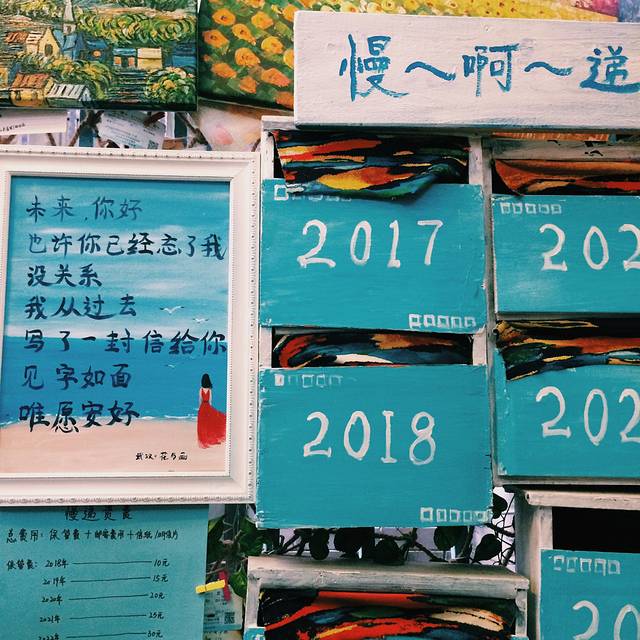 慢～啊～递
未来，你好
也许你已经忘了我
没关系
我从过去
写了一封信给你
见字如面
唯愿安好
2017
202
2018
202
总费用：保管费＋邮寄费用＋信纸/明信片
保管费：2018年 10元
2019年 15元
2020年 20元
2021年 25元
2022年 30元
20